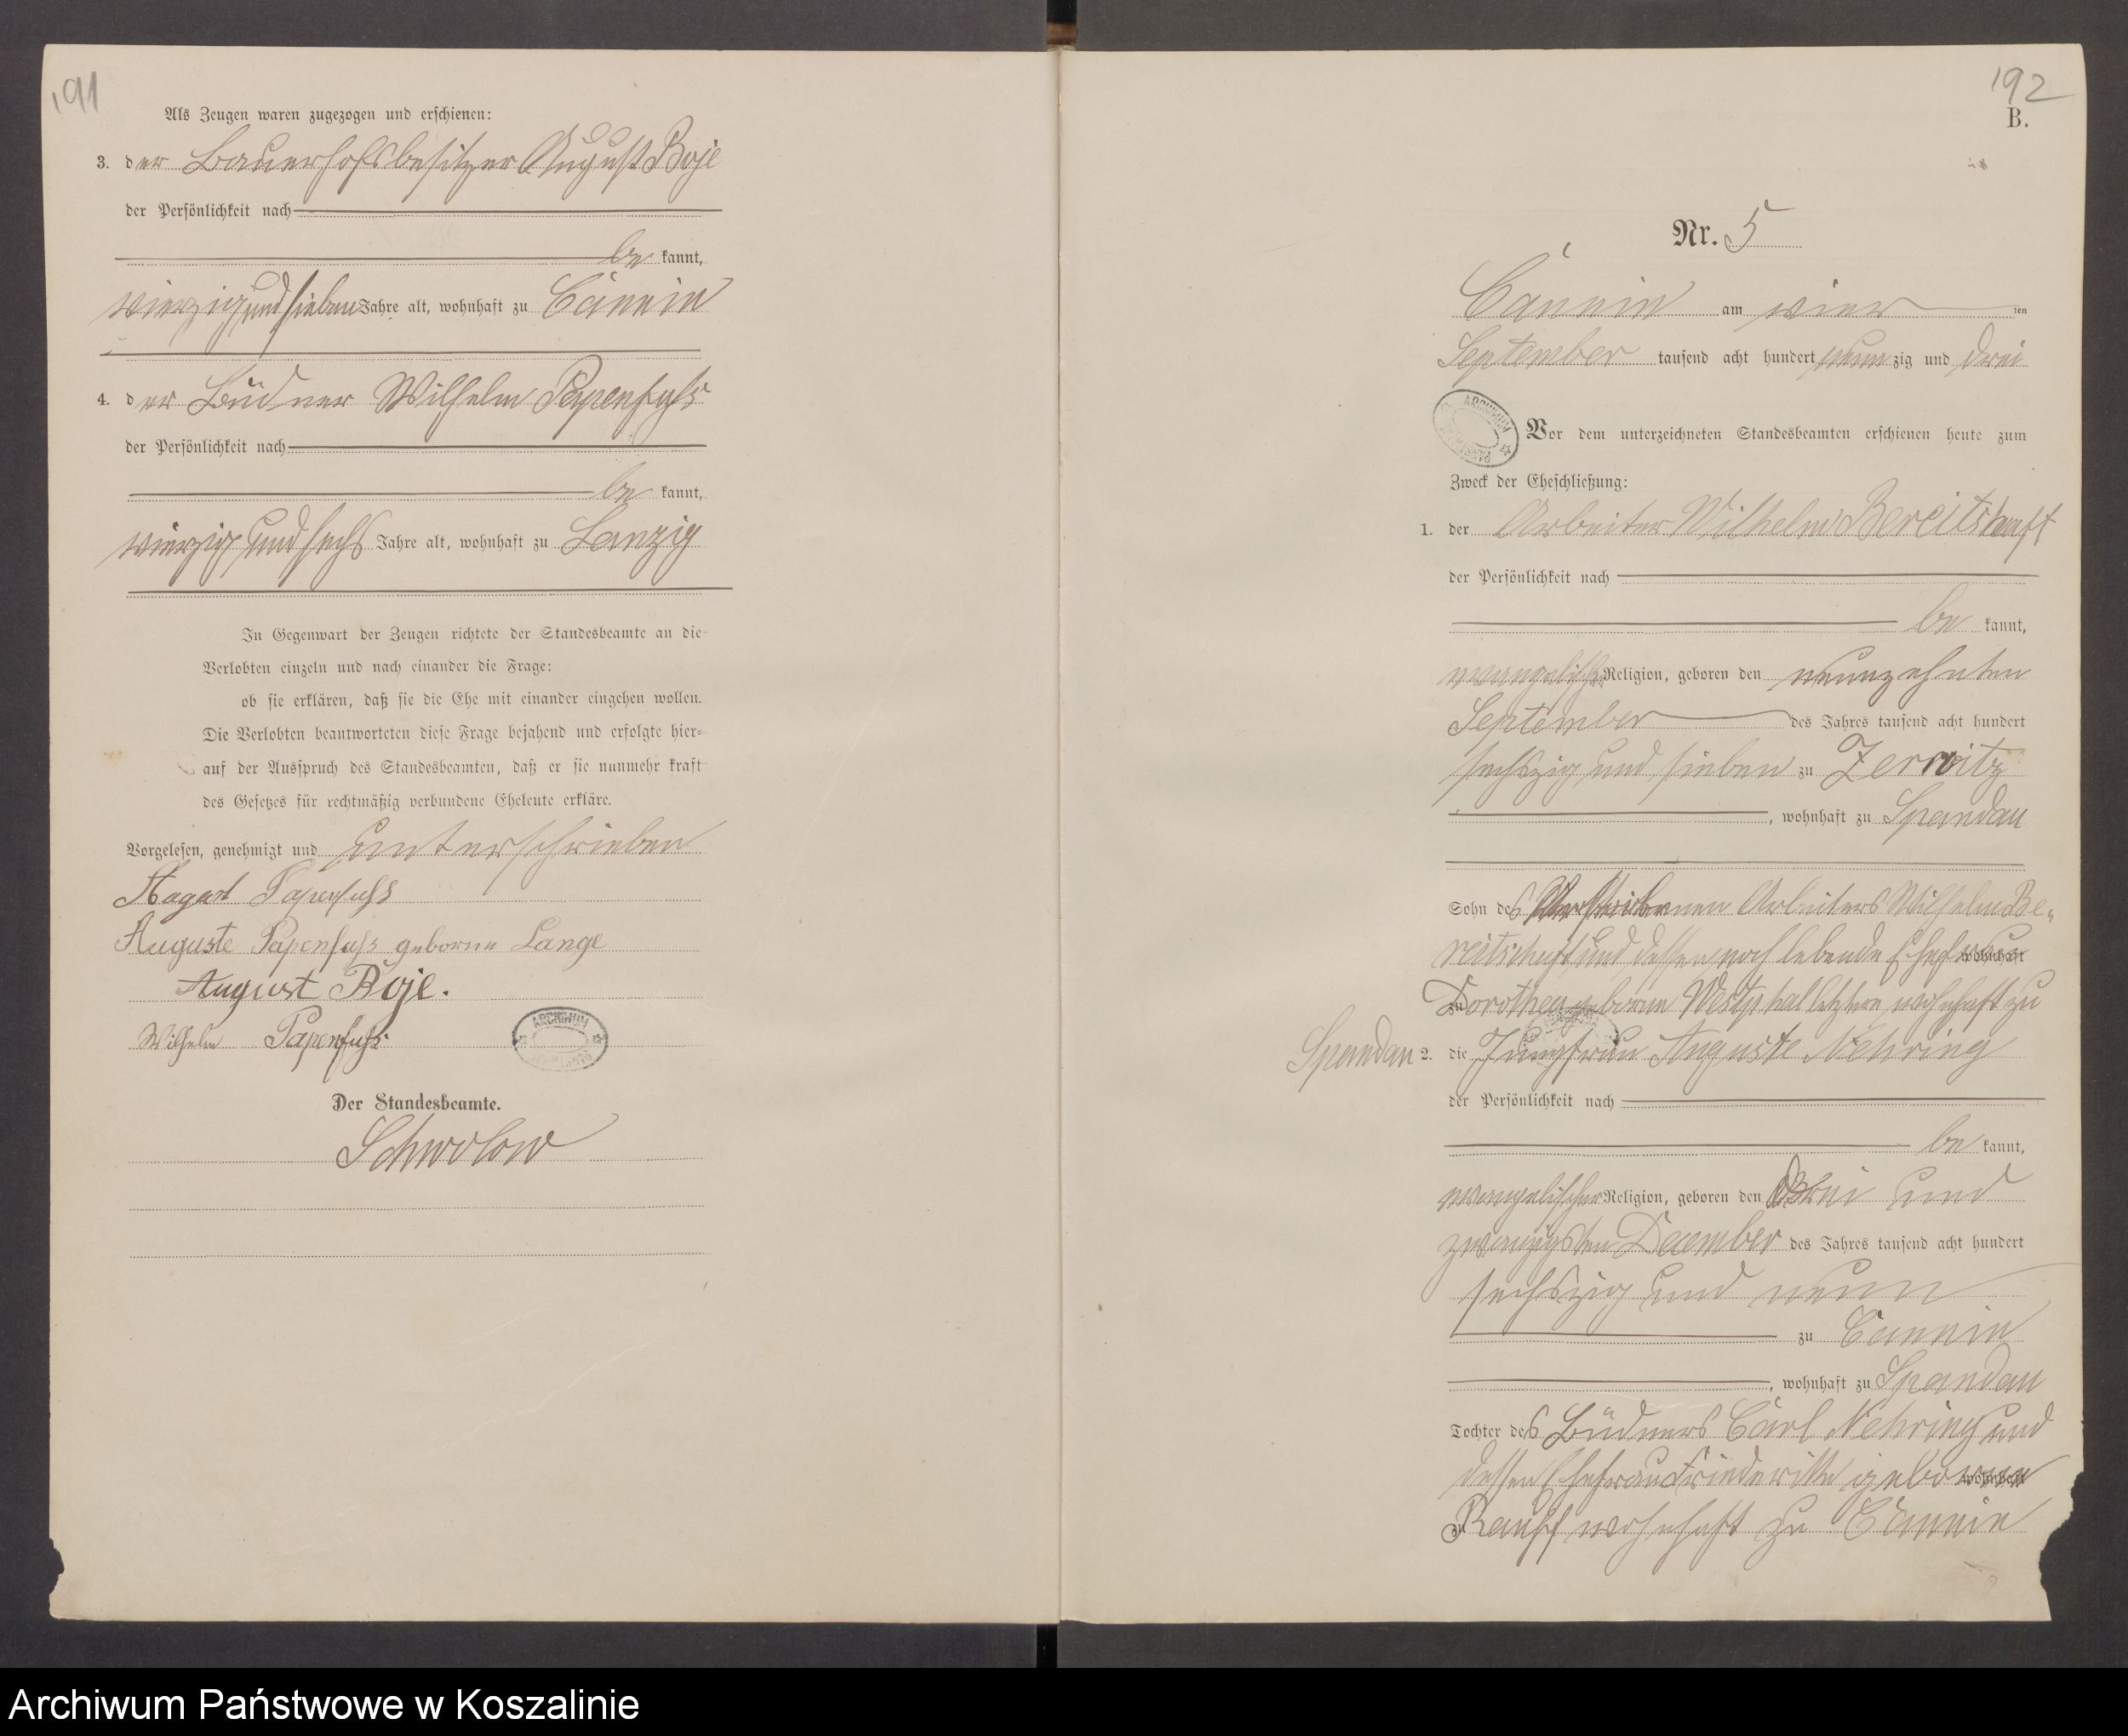 191
Als Zeugen waren zugezogen und erschienen:
3. der Bauerhofsbesitzer August Boje
der Persönlichkeit nach
be kannt,
vierzig und sieben Jahre alt, wohnhaft zu Cannin
4. der Büdner Wilhelm Papenfuhs
der Persönlichkeit nach
be kannt,
vierzig und sechs Jahre alt, wohnhaft zu Lanzig
In Gegenwart der Zeugen richtete der Standesbeamte an die
Verlobten einzeln und nach einander die Frage:
ob sie erklären, daß sie die Ehe mit einander eingehen wollen.
Die Verlobten beantworteten diese Frage bejahend und erfolgte hier-
auf der Ausspruch des Standesbeamten, daß er sie nunmehr kraft
des Gesetzes für rechtmäßig verbundene Eheleute erkläre.
Vorgelesen, genehmigt und unterschrieben
Papenfuhs
Auguste Papenfuhs geborne Lange
August Boje.
Wilhelm Papenfuhs
ARCHIWUM
Der Standesbeamte.
Schwolow
192
B.
Nr. 5
Cannin am vier ten
September tausend acht hundert neun zig und drei
ARCHIWUM
Vor dem unterzeichneten Standesbeamten erschienen heute zum
Zweck der Eheschließung:
1. der Arbeiter Wilhelm Bereitschaft
der Persönlichkeit nach
be kannt,
evangelischer Religion, geboren den neunzehnten
September des Jahres tausend acht hundert
sechszig und sieben zu Zerwitz
, wohnhaft zu Spandau
Sohn des Verstorbenen Arbeiters Wilhelm Be-
reitschaft und dessen noch lebende Ehefrau wohnhaft
zu Dorothea geborne Westphal letztere wohnhaft zu
Spandau 2. die Jungfrau Auguste Nehring
der Persönlichkeit nach
be kannt,
evangelischer Religion, geboren den Drei und
zwanzigsten December des Jahres tausend acht hundert
sechszig und neun
zu Cannin
, wohnhaft zu Spandau
Tochter des Büdners Carl Nehring und
dessen Ehefrau Friederike geborne wohnhaft
zu wohnhaft zu Cannin
Archiwum Państwowe w Koszalinie